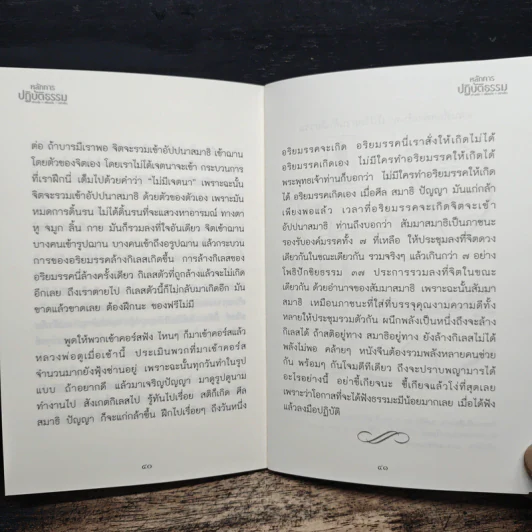 หลักการ
ปฏิบัติธรรม
ต่อ ถ้าบารมีเราพอ จิตจะรวมเข้าอัปปนาสมาธิ เข้าฌาน
โดยตัวของจิตเอง โดยเราไม่ได้เจตนาจะเข้า กระบวนการ
ที่เราฝึกนี่ เต็มไปด้วยคำว่า “ไม่มีเจตนา” เพราะฉะนั้น
จิตจะรวมเข้าอัปปนาสมาธิ ด้วยตัวของตัวเอง เพราะมัน
หมดการดิ้นรน ไม่ได้ดิ้นรนที่จะแสวงหาอารมณ์ ทางตา
หู จมูก ลิ้น กาย มันก็รวมลงที่ใจอันเดียว จิตจะเข้าฌาน
บางคนเข้ารูปฌาน บางคนเข้าถึงอรูปฌาน แล้วกระบวน
การของอริยมรรคล้างกิเลสเกิดขึ้น การล้างกิเลสของ
อริยมรรคนี่ล้างครั้งเดียว กิเลสตัวที่ถูกล้างแล้วจะไม่เกิด
อีกเลย ถึงเราตายไป กิเลสตัวนี้ก็ไม่กลับมาเกิดอีก มัน
ขาดแล้วขาดเลย ต้องฝึกนะ ของฟรีไม่มี
พูดให้พวกเข้าคอร์สฟัง ไหนๆ ก็มาเข้าคอร์สแล้ว
หลวงพ่อดูเมื่อเช้านี้ ประเมินพวกที่มาเข้าคอร์ส
จำนวนมากยังฟุ้งซ่านอยู่ เพราะฉะนั้นทุกวันทำในรูป
แบบ ถ้าอยากดี แล้วมาเจริญปัญญา มาดูรูปดูนาม
ทำงานไป สังเกตกิเลสไป รู้ทันไปเรื่อย สติก็เกิด ศีล
สมาธิ ปัญญา ก็จะแก่กล้าขึ้น ฝึกไปเรื่อยๆ ถึงวันหนึ่ง
๔๐
หลักการ
ปฏิบัติธรรม
อริยมรรคจะเกิด อริยมรรคนี่เราสั่งให้เกิดไม่ได้
อริยมรรคเกิดเอง ไม่มีใครทำอริยมรรคให้เกิดได้
พระพุทธเจ้าท่านก็บอกว่า ไม่มีใครทำอริยมรรคให้เกิด
ได้ อริยมรรคเกิดเอง เมื่อศีล สมาธิ ปัญญา มันแก่กล้า
เพียงพอแล้ว เวลาที่อริยมรรคจะเกิดจิตจะเข้า
อัปปนาสมาธิ ท่านถึงบอกว่า สัมมาสมาธิเป็นภาชนะ
รองรับองค์มรรคทั้ง ๗ ที่เหลือ ให้ประชุมลงที่จิตดวง
เดียวกันในขณะเดียวกัน รวมจริงๆ แล้วเกินกว่า ๗ อย่าง
โพธิปักขิยธรรม ๓๗ ประการรวมลงที่จิตในขณะ
เดียวกัน ด้วยอำนาจของสัมมาสมาธิ เพราะฉะนั้นสัมมา
สมาธิ เหมือนภาชนะที่ใส่ที่บรรจุคุณงามความดีทั้ง
หลายให้ประชุมรวมตัวกัน ผนึกพลังเป็นหนึ่งถึงจะล้าง
กิเลสได้ ถ้าสติอยู่ทาง สมาธิอยู่ทาง ยังล้างกิเลสไม่ได้
พลังไม่พอ คล้ายๆ หนังจีนต้องรวมพลังหลายคนช่วย
กัน พร้อมๆ กันโจมตีทีเดียว ถึงจะปราบพญามารได้
อะไรอย่างนี้ อย่าขี้เกียจนะ ขี้เกียจแล้วโง่ที่สุดเลย
เพราะว่าโอกาสที่จะได้ฟังธรรมะมีน้อยมากเลย เมื่อได้ฟัง
แล้วลงมือปฏิบัติ
๔๑